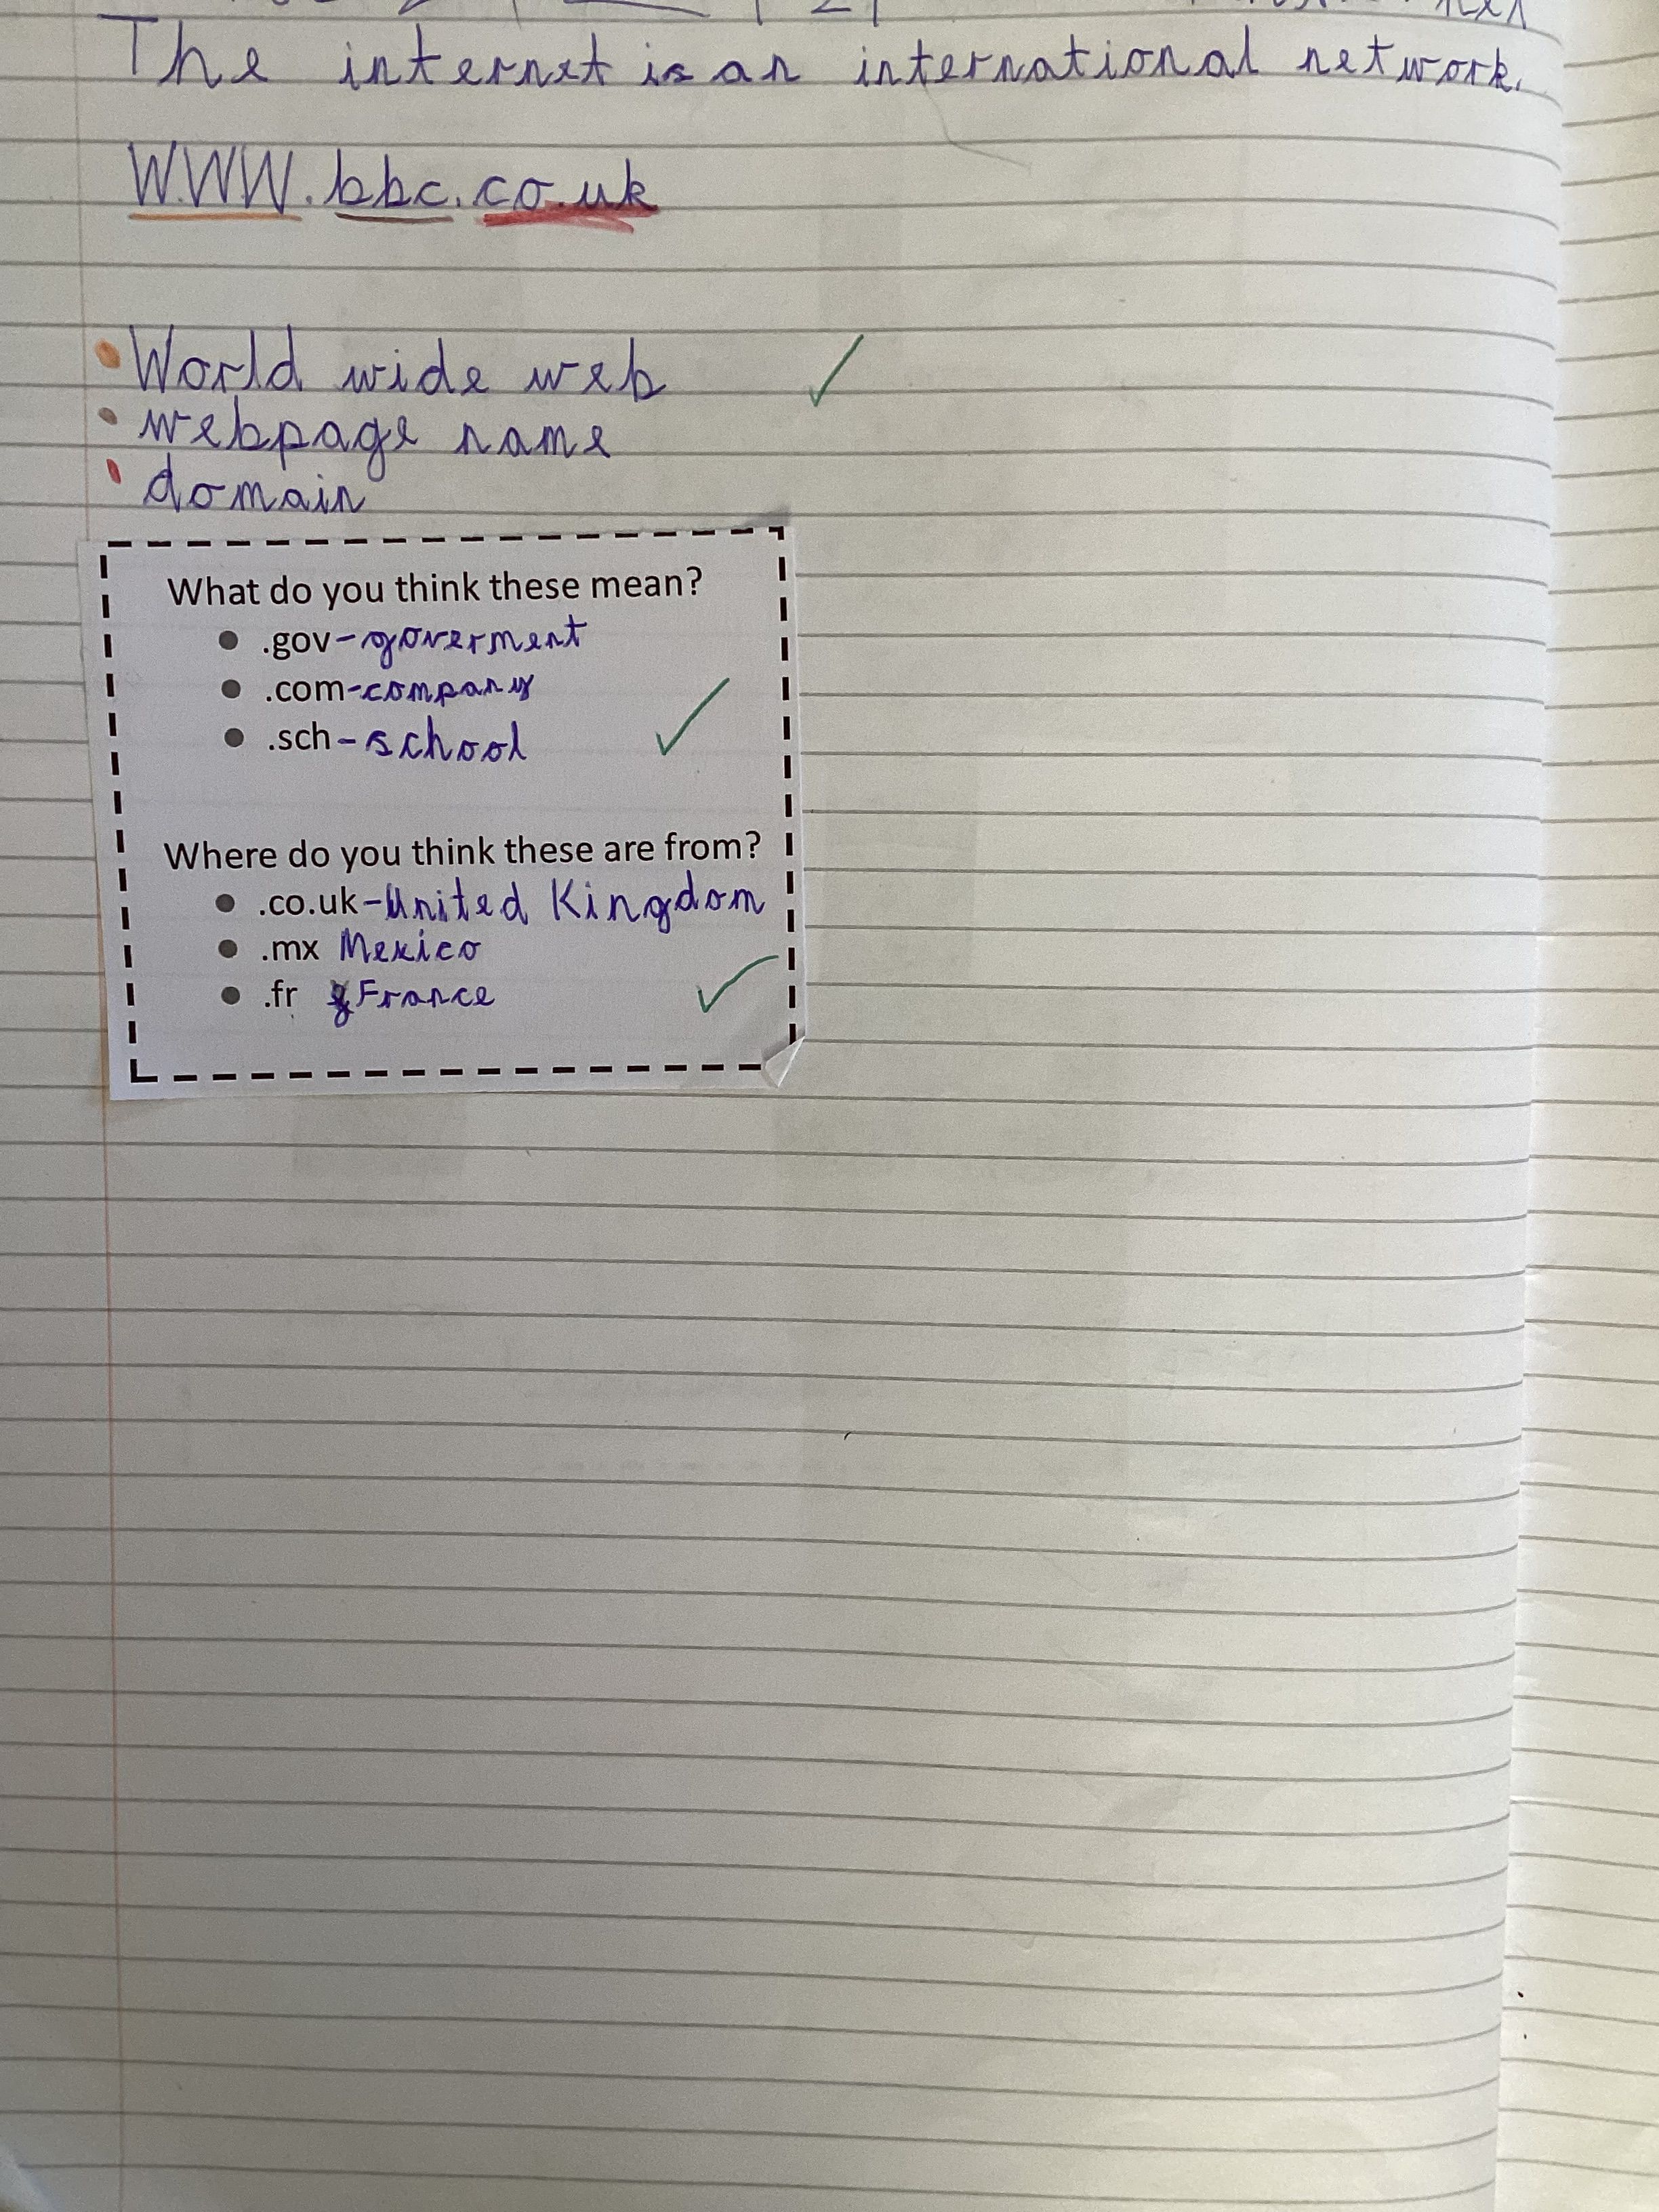 The internet is an international network.
WWW.bbc.co.uk
• World wide web
• webpage name
• domain
What do you think these mean?
● .gov-goverment
● .com-company
● .sch-school
Where do you think these are from?
● .co.uk-United Kingdom
● .mx Mexico
● .fr France